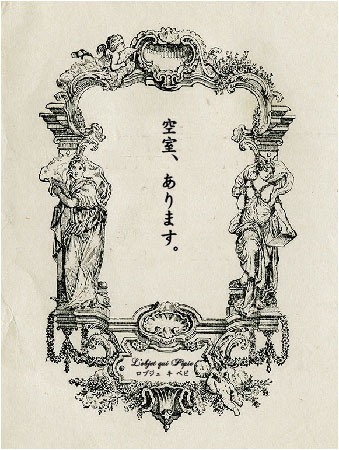 空室、あります。
L'objet qui Pepie
ロブジェ キ ペピ